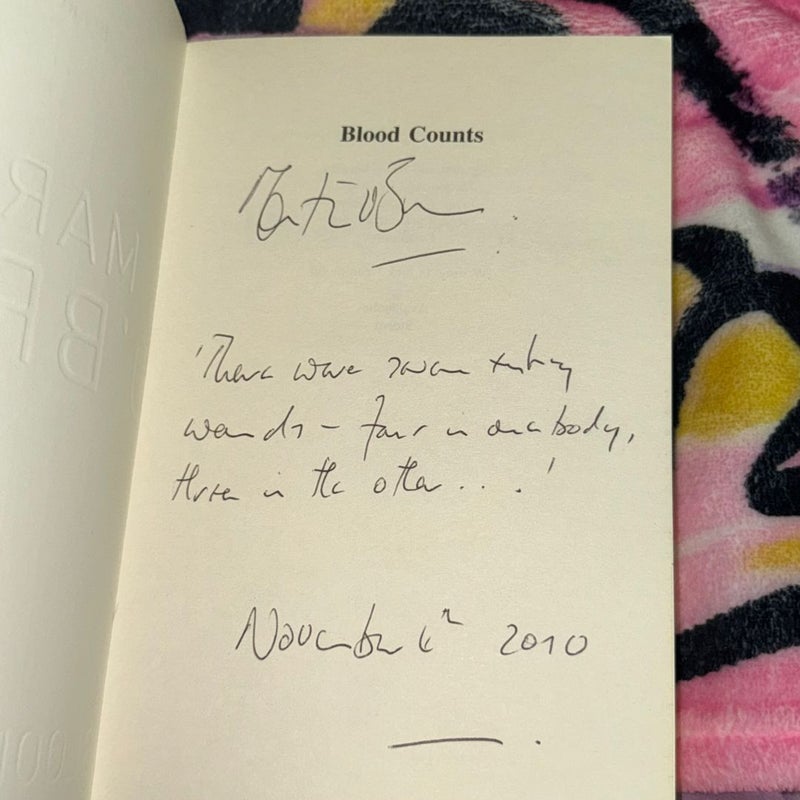 Blood Counts
Martin O'Brien
'There were seven entry
wounds – four in one body,
three in the other . . . .'
November 6th 2010